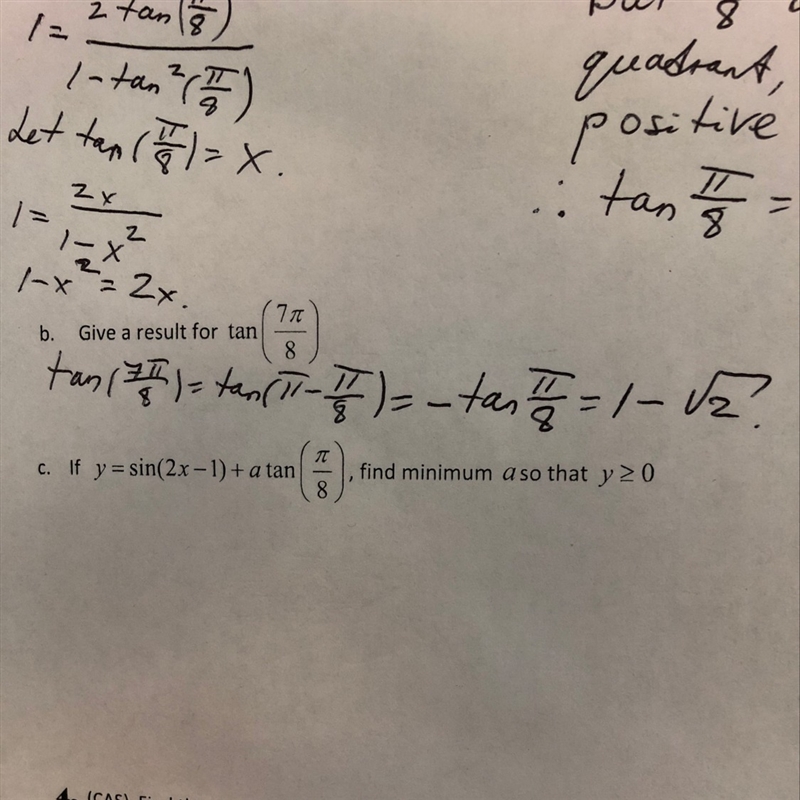 1 = 2 tan(π/8) / 1 - tan²(π/8)
Let tan(π/8) = x.
1 = 2x / 1 - x²
1 - x² = 2x.
8
quadrant,
positive
∴ tan π/8 =
b. Give a result for tan(7π/8)
tan(7π/8) = tan(π - π/8) = - tan π/8 = 1 - √2?
c. If y = sin(2x - 1) + a tan(π/8), find minimum a so that y ≥ 0
4. (CAS)